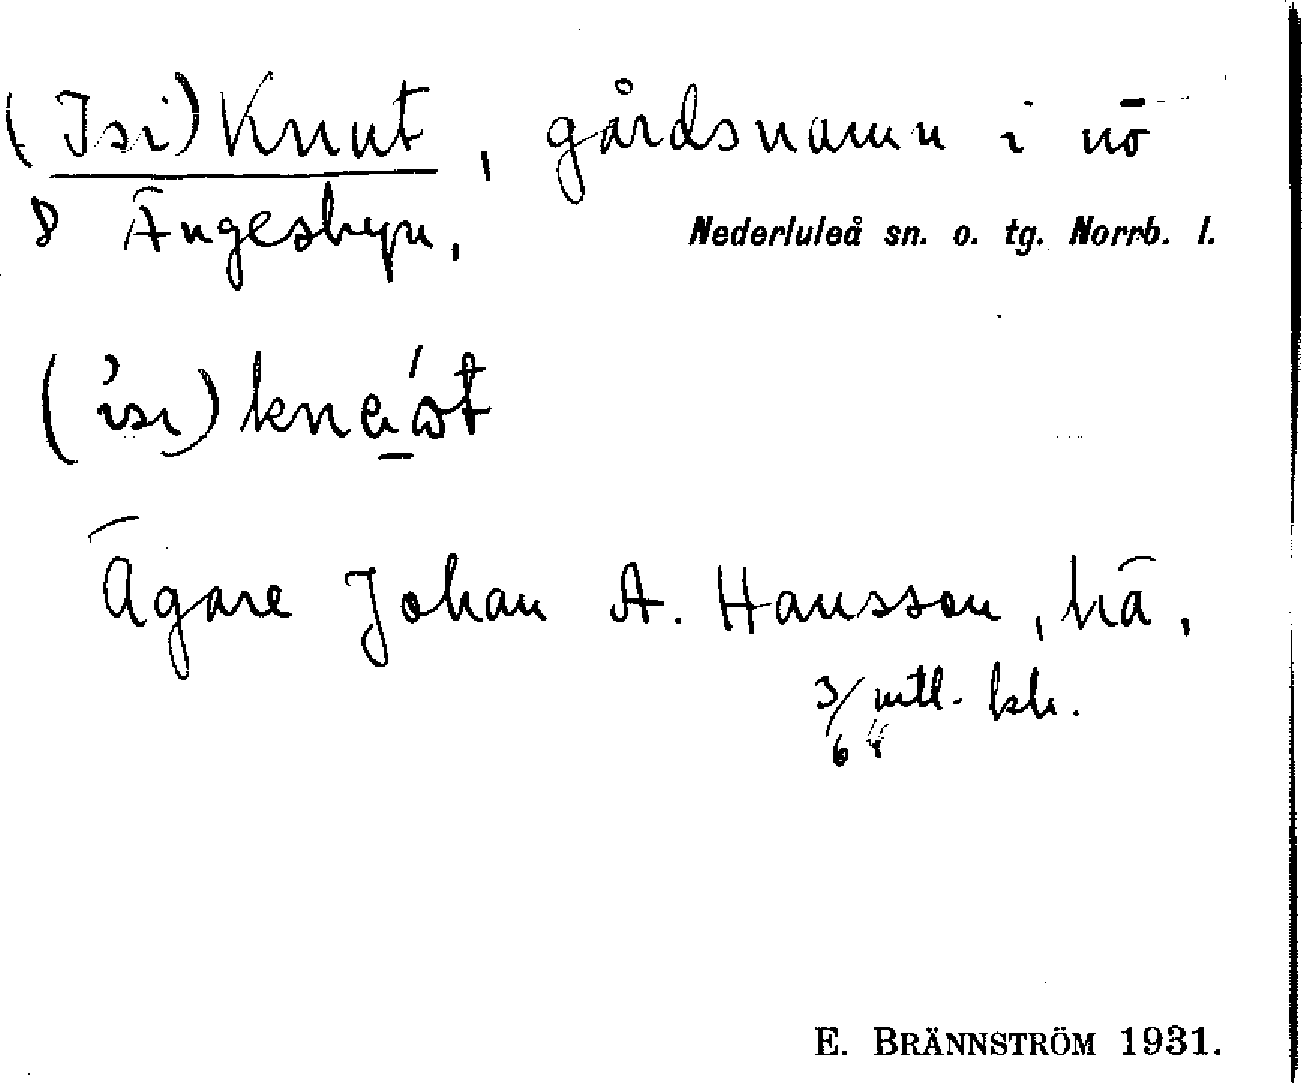 (Isi)Knut, gårdsnamn i nö
8 Ängesbyn,
Nederluleå sn. o. tg. Norrb. l.
(isi)
Ägare Johan A. Hansson, hä,
3/64 mtl.
E. BRÄNNSTRÖM 1931.